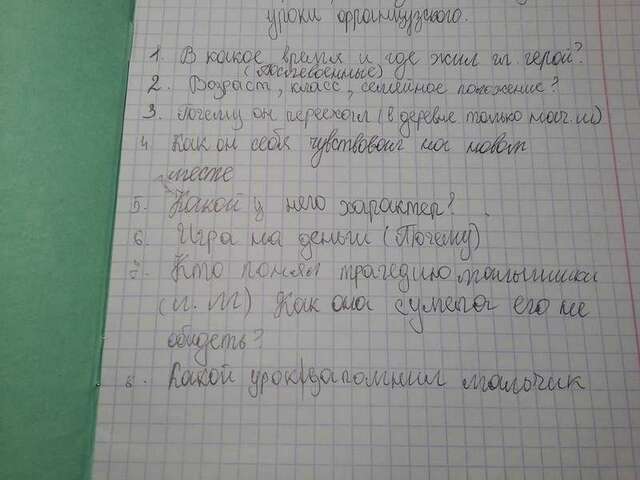 уроки французского.
1. В какое время и где жил гл. герой?
(Послевоенные)
2. Возраст, класс, семейное положение?
3. Почему он переехал (в деревне только нач. ш)
4 Как он себя чувствовал на новом
месте
5. Какой у него характер?
6. Игра на деньги (Почему)
7. Кто понял трагедию мальчишки
(Л. М) Как она сумела его не
обидеть?
8. Какой урок запомнил мальчик